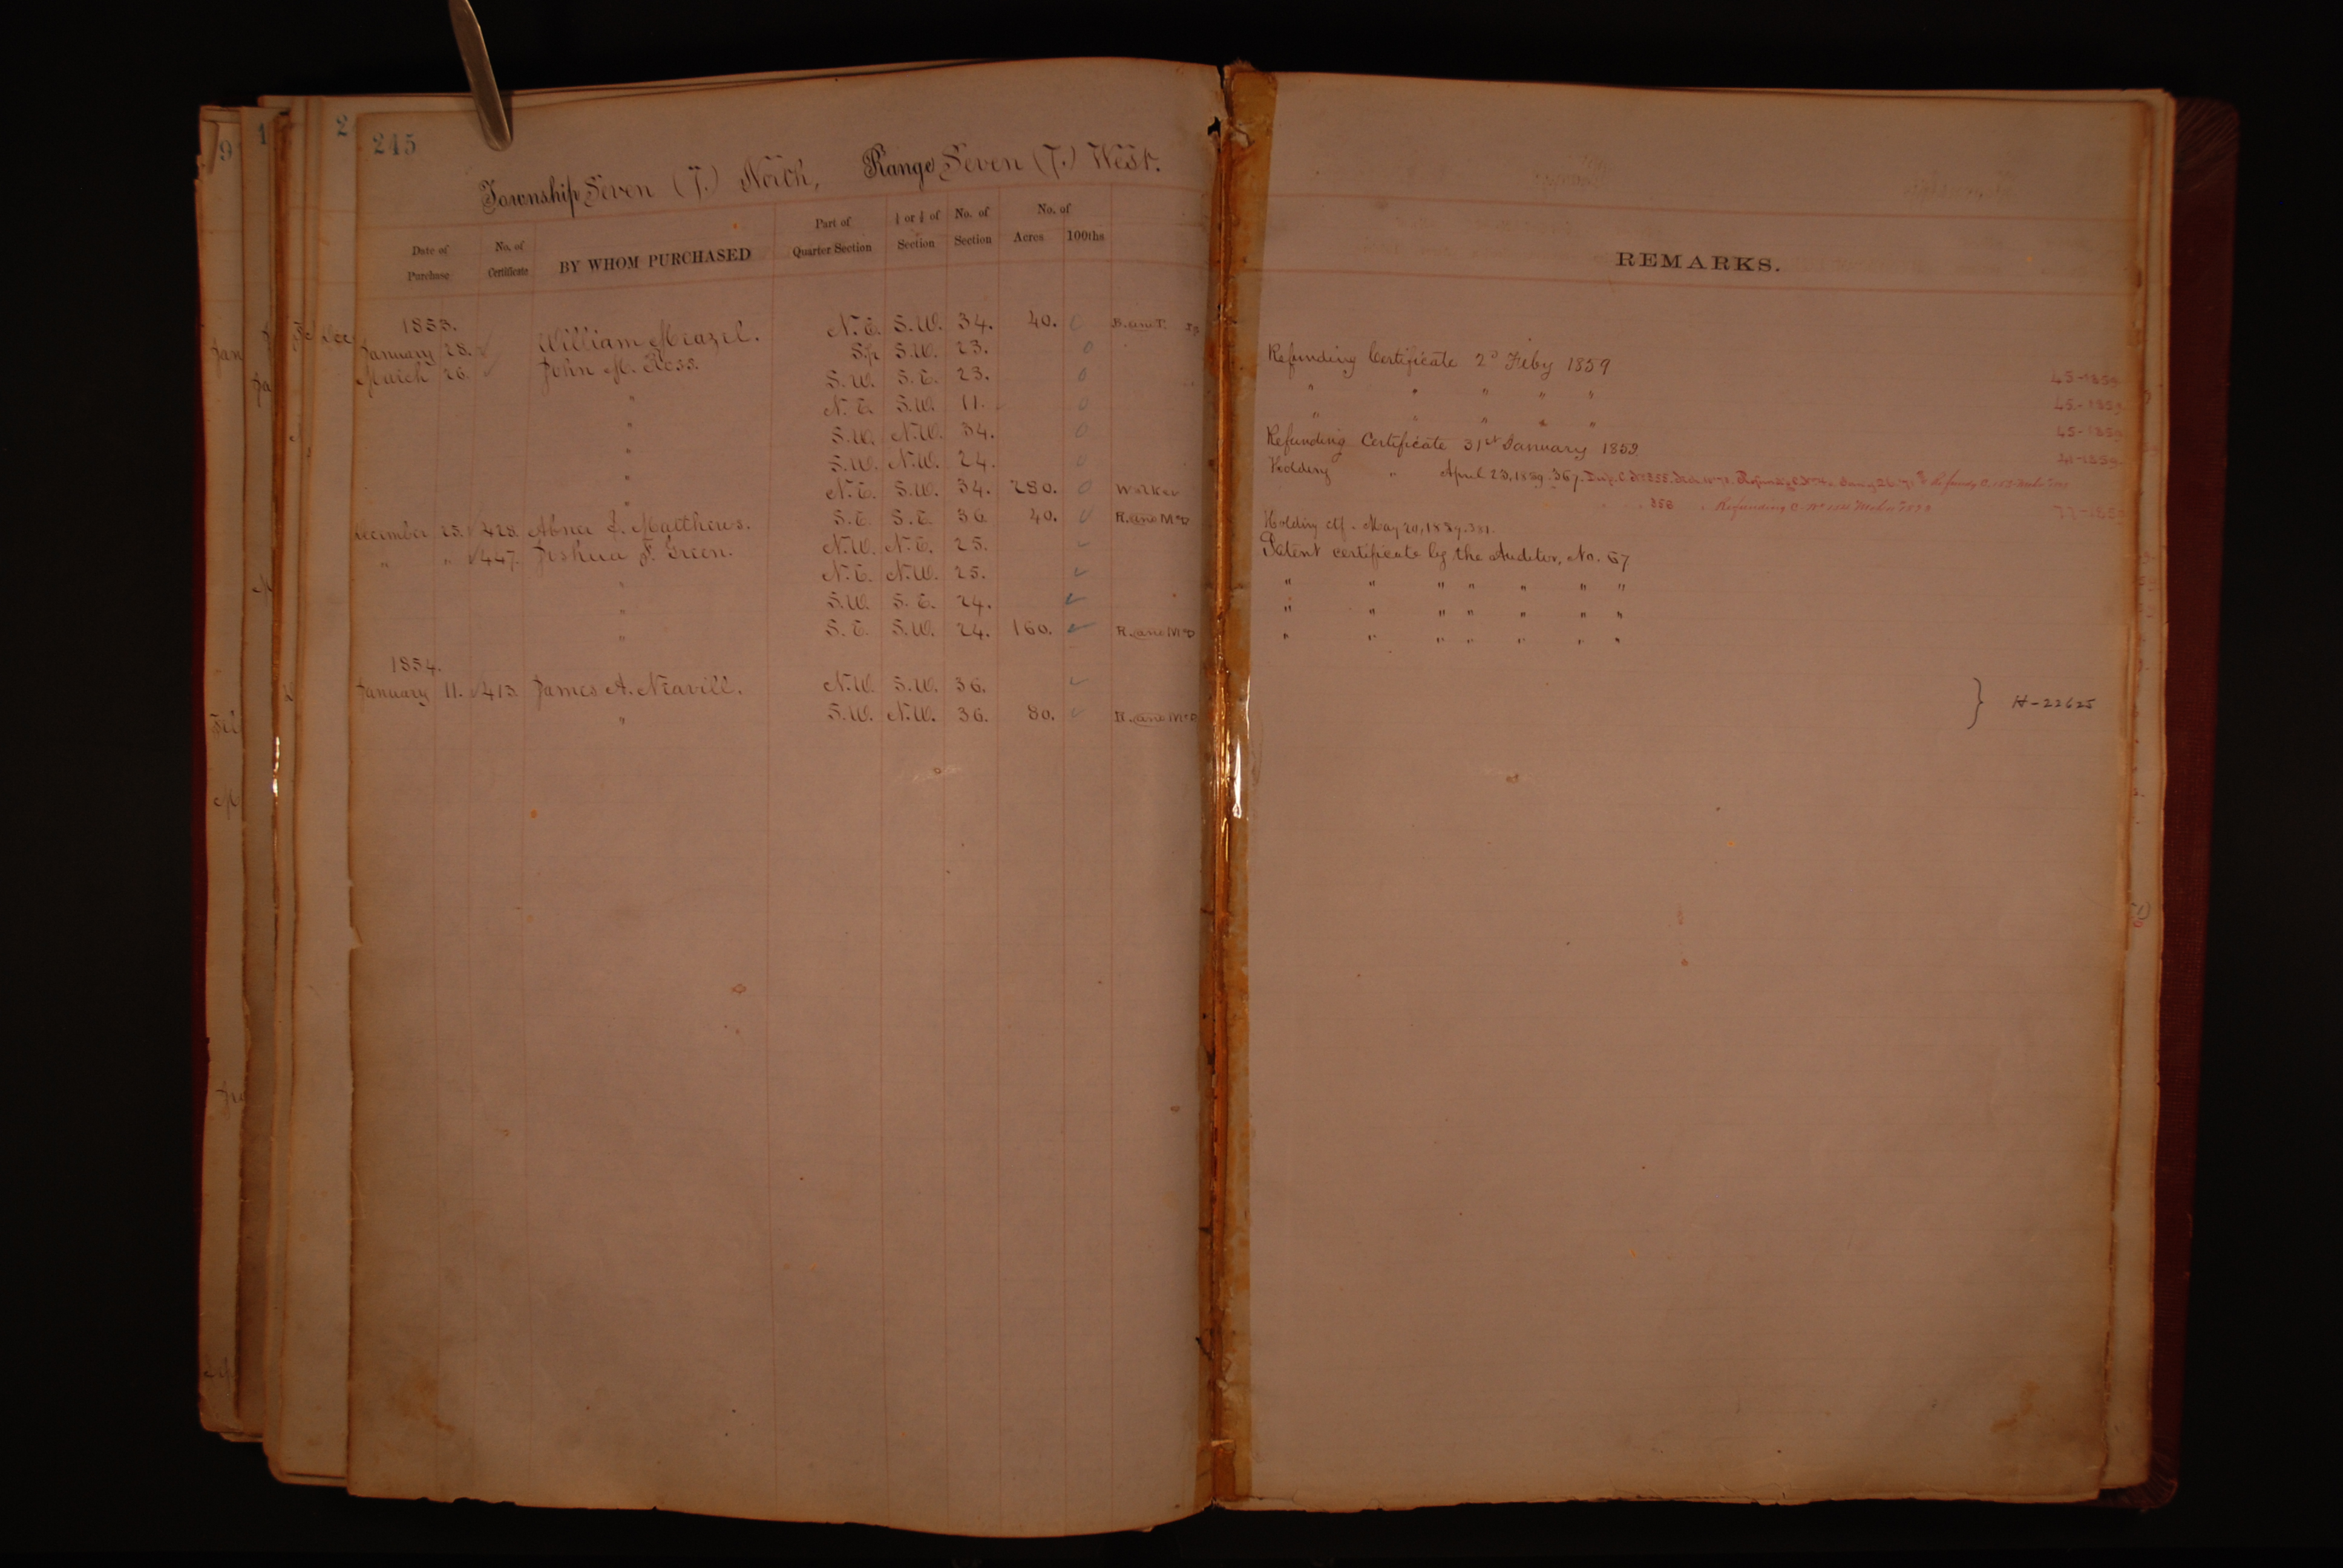 245
Township Seven (7.) North, Range Seven (7.) West.
Date of Purchase | No. of Certificate | BY WHOM PURCHASED | Part of Quarter Section | ¼ or ½ of Section | No. of Section | No. of Acres | 100ths
REMARKS.
1853.
January 28. William Meazel. N.E. S.W. 34. 40. 0 B. and T.
March 26. John M. Ross. S½ S.W. 23. 0 Refunding Certificate 2d Feby 1859 45-1859
" S.W. S.E. 23. 0 " " " " " 45-1859
" N.E. S.W. 11. 0 " " " " " 45-1859
" S.W. N.W. 34. 0 Refunding Certificate 31st January 1859 41-1859
" S.W. N.W. 24. 0 Holding " April 23, 1889. 367.
" N.E. S.W. 34. 280. 0 Walker 358
December 23. 428. Abner L. Matthews. S.E. S.E. 36 40. 0 R. and McD Holding Ctf. May 20, 1889. 381.
" " 447. Joshua F. Green. N.W. N.E. 25. Patent certificate by the Auditor, No. 67
" N.E. N.W. 25. " " " " " " "
" S.W. S.E. 24. " " " " " " "
" S.E. S.W. 24. 160. R. and McD " " " " " " "
1854.
January 11. 413. James A. Neavill. N.W. S.W. 36.
" S.W. N.W. 36. 80. R. and McD } H-22625